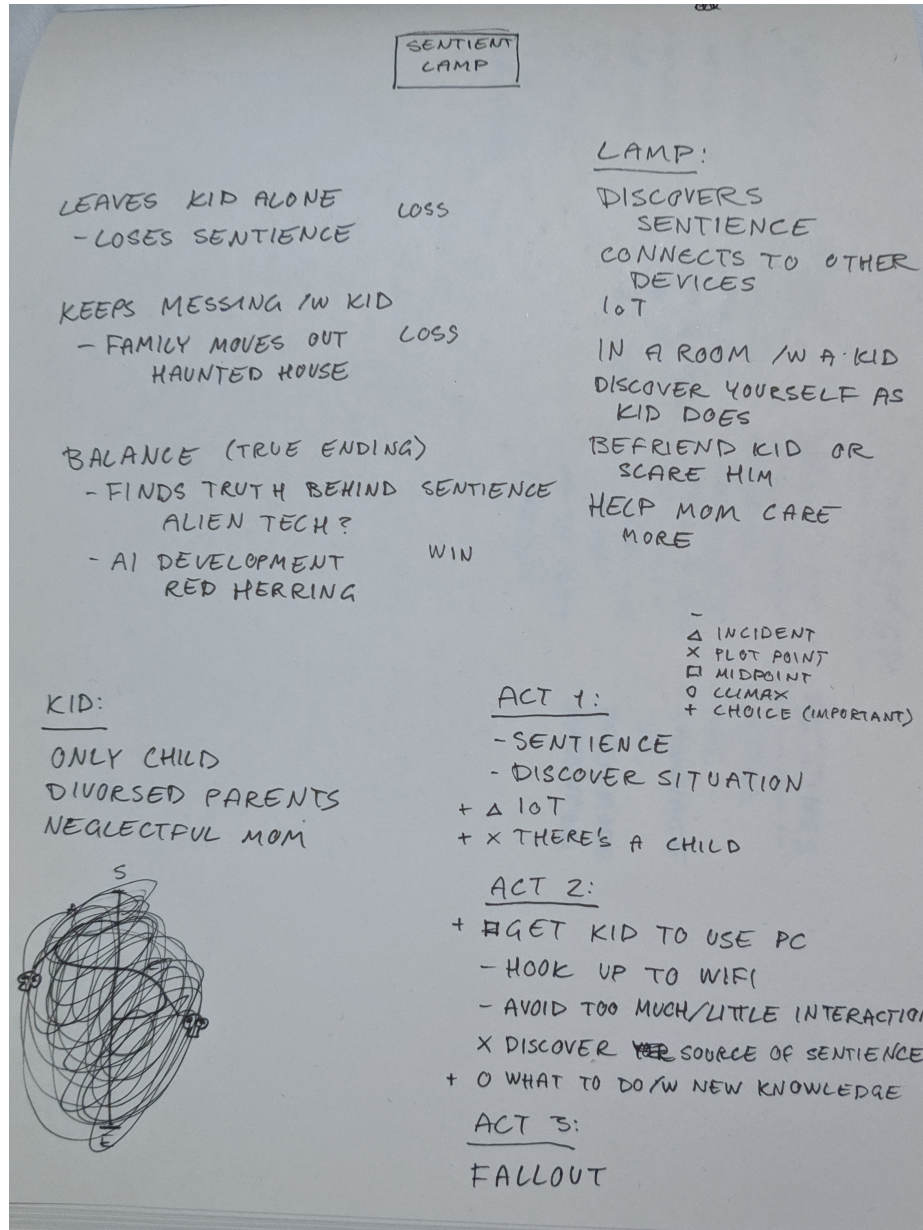 SENTIENT
LAMP
LEAVES KID ALONE
- LOSES SENTENCE
LOSS
KEEPS MESSING /W KID
- FAMILY MOVES OUT
HAUNTED HOUSE
LOSS
BALANCE (TRUE ENDING)
- FINDS TRUTH BEHIND SENTIENCE
ALIEN TECH?
- AI DEVELOPMENT
RED HERRING
WIN
LAMP:
DISCOVERS
SENTIENCE
CONNECTS TO OTHER
DEVICES
IoT
IN A ROOM /W A KID
DISCOVER YOURSELF AS
KID DOES
BEFRIEND KID OR
SCARE HIM
HELP MOM CARE
MORE
-
△ INCIDENT
X PLOT POINT
□ MIDPOINT
O CLIMAX
+ CHOICE (IMPORTANT)
KID:
ONLY CHILD
DIVORSED PARENTS
NEGLECTFUL MOM
S
E
ACT 1:
- SENTIENCE
- DISCOVER SITUATION
+ △ IoT
+ X THERE'S A CHILD
ACT 2:
+ □ GET KID TO USE PC
- HOOK UP TO WIFI
- AVOID TOO MUCH/LITTLE INTERACTION
X DISCOVER SOURCE OF SENTIENCE
+ O WHAT TO DO /W NEW KNOWLEDGE
ACT 3:
FALLOUT